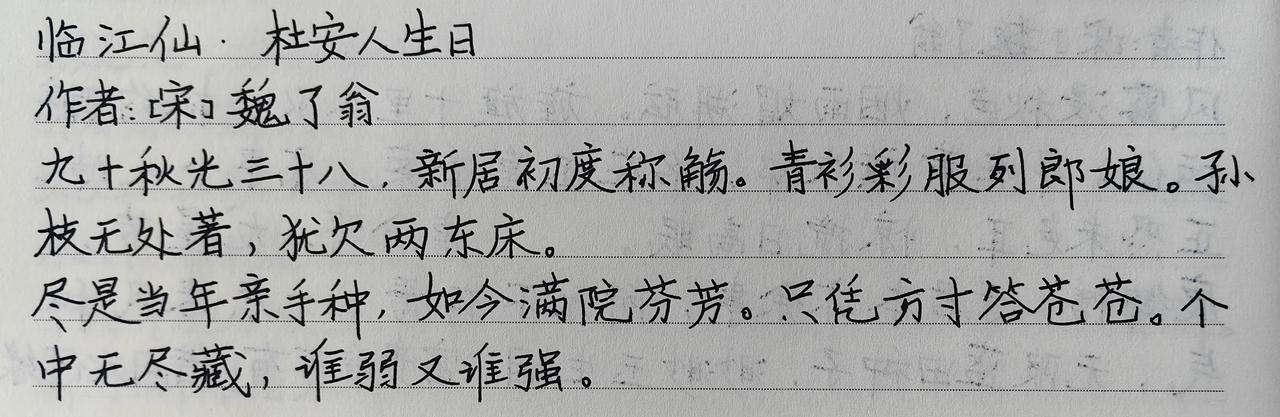 临江仙·杜安人生日
作者:[宋]魏了翁
九十秋光三十八,新居初度称觞。青衫彩服列郎娘。孙
枝无处著,犹欠两东床。
尽是当年亲手种,如今满院芬芳。只凭方寸答苍苍。个
中无尽藏,谁弱又谁强。